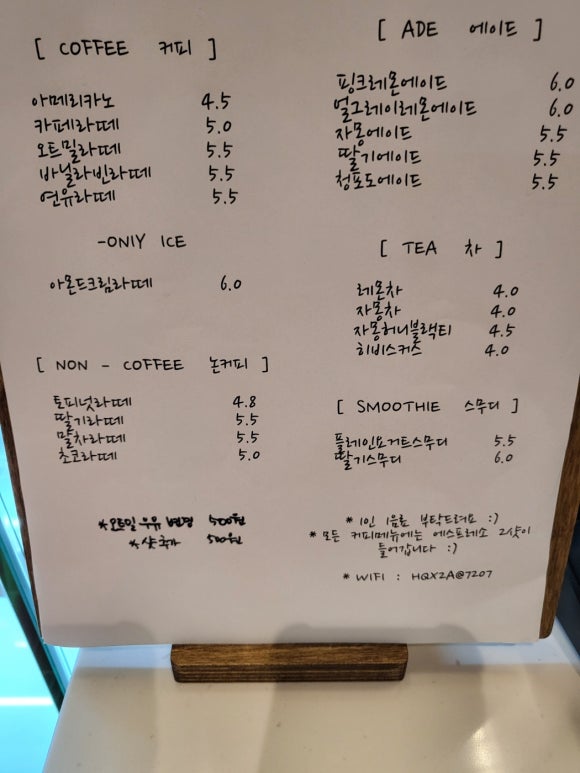 [ COFFEE 커피 ]
아메리카노 4.5
카페라떼 5.0
오트밀라떼 5.5
바닐라빈라떼 5.5
연유라떼 5.5
-ONlY ICE
아몬드크림라떼 6.0
[ NON - COFFEE 논커피 ]
토피넛라떼 4.8
딸기라떼 5.5
말차라떼 5.5
초코라떼 5.0
*오트밀 우유 변경 500원
*샷 추가 500원
[ ADE 에이드 ]
핑크레몬에이드 6.0
얼그레이레몬에이드 6.0
자몽에이드 5.5
딸기에이드 5.5
청포도에이드 5.5
[ TEA 차 ]
레몬차 4.0
자몽차 4.0
자몽허니블랙티 4.5
히비스커스 4.0
[ SMOOTHIE 스무디 ]
플레인요거트스무디 5.5
딸기스무디 6.0
* 1인 1음료 부탁드려요 :)
* 모든 커피메뉴에는 에스프레소 2샷이
들어갑니다 :)
* WIFI : HQX2A@7207